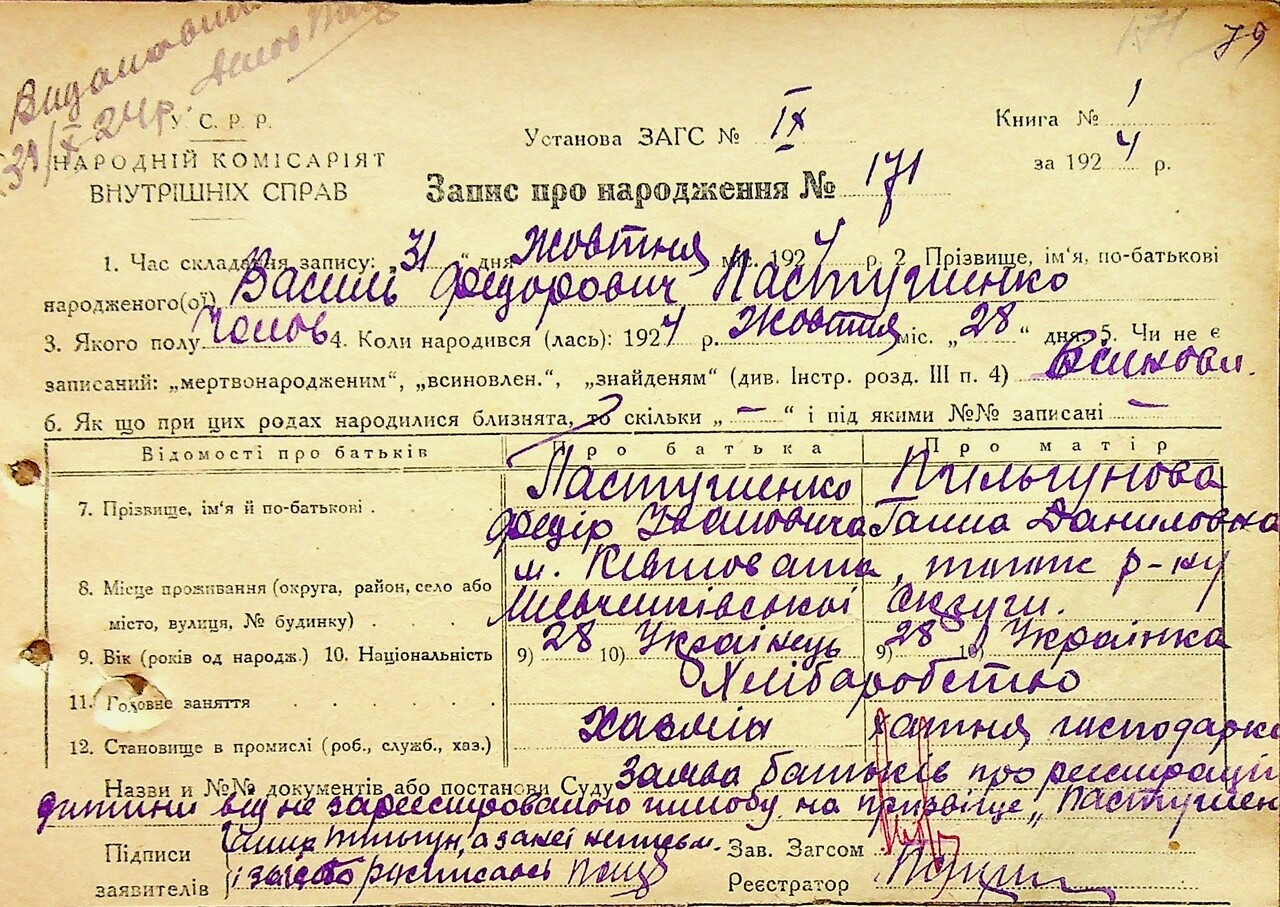 171 79
31/X 24р.
У. С. Р. Р.
НАРОДНІЙ КОМІСАРІЯТ
ВНУТРІШНІХ СПРАВ
Установа ЗАГС № IX
Книга № 1
за 1924 р.
Запис про народження № 171
1. Час складання запису: „31“ дня жовтня міс. 1924 р. 2 Прізвище, ім'я, по-батькові
народженого(ої) Василь Федорович Пастушенко
3. Якого полу Чолов 4. Коли народився (лась): 1924 р. жовтня міс. „28“ дня. 5. Чи не є
записаний: „мертвонародженим“, „всиновлен.“, „знайденям“ (див. Інстр. розд. III п. 4) Всиновл.
6. Як що при цих родах народилися близнята, то скільки „—“ і під якими №№ записані —
Відомості про батьків Про батька Про матір
7. Прізвище, ім'я й по-батькові . Пастушенко
Федір Іванович Ганна Даниловна
8. Місце проживання (округа, район, село або
місто, вулиця, № будинку) . . . . м. р-ну
округи.
9. Вік (років од народж.) 10. Національність 9) 28 10) Українець 9) 28 10) Українка
11. Головне заняття . . . . . . Хліборобство
12. Становище в промислі (роб., служб., хаз.) Хазяїн хатня господарка
Назви и №№ документів або постанови Суду Заява батьків про реєстрації
дитини від не зареєстрованого шлюбу на призвіще „Пастушен
Підписи
заявителів
Зав. Загсом
Реєстратор